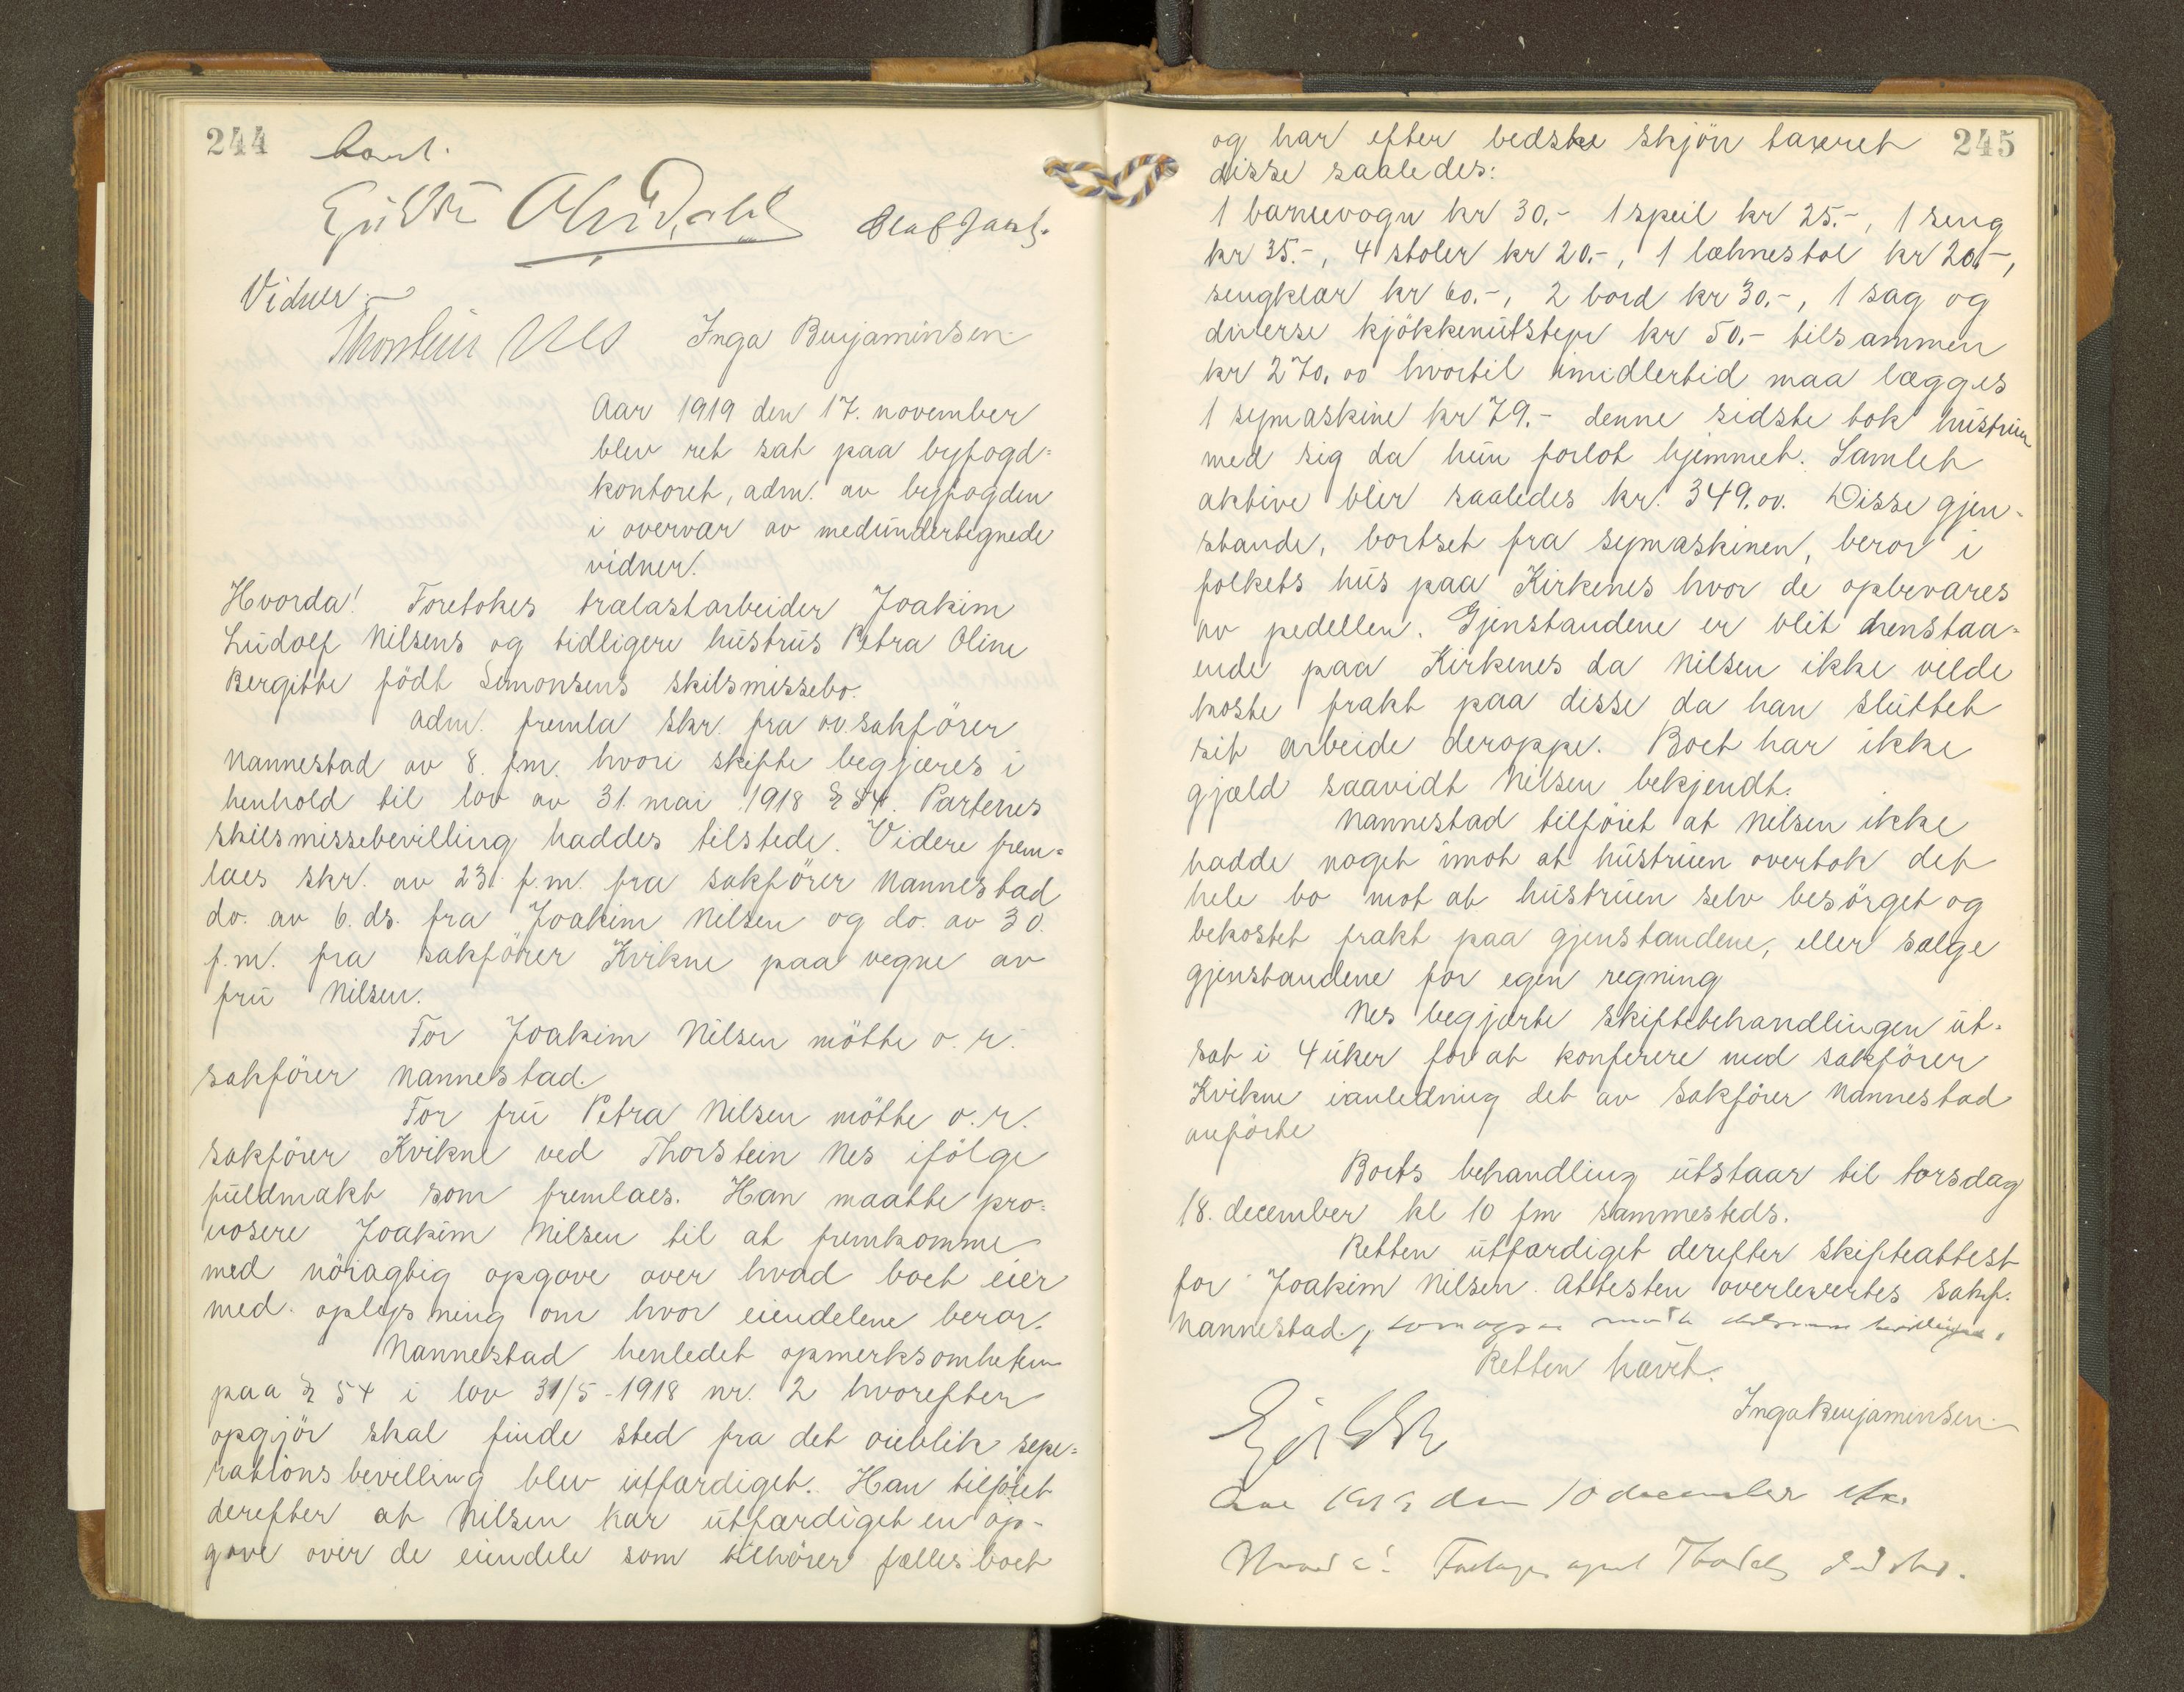 244
Vidner
Thorstein Nes Inga Benjaminsen
Aar 1919 den 17. november
blev ret sat paa byfogd-
kontoret, adm. av byfogden
i overvær av medundertegnede
vidner.
Hvorda! Foretokes trælastarbeider Joakim
Ludolf Nilsens og tidligere hustrus Petra Oline
Bergitte född Simonsens skilsmissebo.
adm. fremla skr. fra o.r. sakförer
Nannestad av 8. f.m. hvori skifte begjæres i
henhold til lov av 31 mai 1918 § 54. Partenes
skilsmissebevilling haddes tilstede. Videre frem-
laes skr. av 23. f.m. fra sakförer Nannestad
do. av 6. ds. fra Joakim Nilsen og do. av 30.
f.m. fra sakförer Kvikne paa vegne av
fru Nilsen.
For Joakim Nilsen mötte o. r.
sakförer Nannestad.
For fru Petra Nilsen mötte o. r.
sakförer Kvikne ved Thorstein Nes ifölge
fuldmakt som fremlaes. Han maatte pro-
vosere Joakim Nilsen til at fremkomme
med nöiagtig opgave over hvad boet eier
med oplysning om hvor eiendelene beror.
Nannestad henledet opmerksomheten
paa § 54 i lov 31/5-1918 nr. 2 hvorefter
opgjör skal finde sted fra det öieblik sepe-
rationsbevilling blev utfærdiget. Han tilföiet
derefter at Nilsen har utfærdiget en op-
gave over de eiendele som tilhörer fællesboet
245
og har efter bedste skjön taxeret
disse saaledes:
1 barnevogn kr 30.- 1 speil kr 25.-, 1 seng
kr 35.-, 4 stoler kr 20.-, 1 lænestol kr 20.-,
sengklær kr 60.-, 2 bord kr 30.-, 1 sag og
diverse kjökkenutstyr kr 50.- tilsammen
kr 270.00 hvortil imidlertid maa lægges
1 symaskine kr 79.- denne sidste tok hustruen
med sig da hun forlot hjemmet. Samlet
aktive blir saaledes kr. 349.00. Disse gjen-
stande, bortset fra symaskinen, beror i
folkets hus paa Kirkenes hvor de opbevares
av pedellen. Gjenstandene er blit henstaa-
ende paa Kirkenes da Nilsen ikke vilde
koste frakt paa disse da han sluttet
sit arbeide deroppe. Boet har ikke
gjæld saavidt Nilsen bekjendt.
Nannestad tilföiet at Nilsen ikke
hadde noget imot at hustruen overtok det
hele bo mot at hustruen selv besörget og
bekostet frakt paa gjenstandene, eller sælge
gjenstandene for egen regning
Nes begjærte skiftebehandlingen ut-
sat i 4 uker for at konferere med sakförer
Kvikne ianledning det av sakförer Nannestad
anförte
Boets behandling utstaar til torsdag
18. december kl 10 fm sammesteds.
Retten utfærdiget derefter skifteattest
for Joakim Nilsen. Attesten overlevertes sakf.
Nannestad,
Retten hævet.
Inga Benjaminsen
Aar 1919 den 10 december